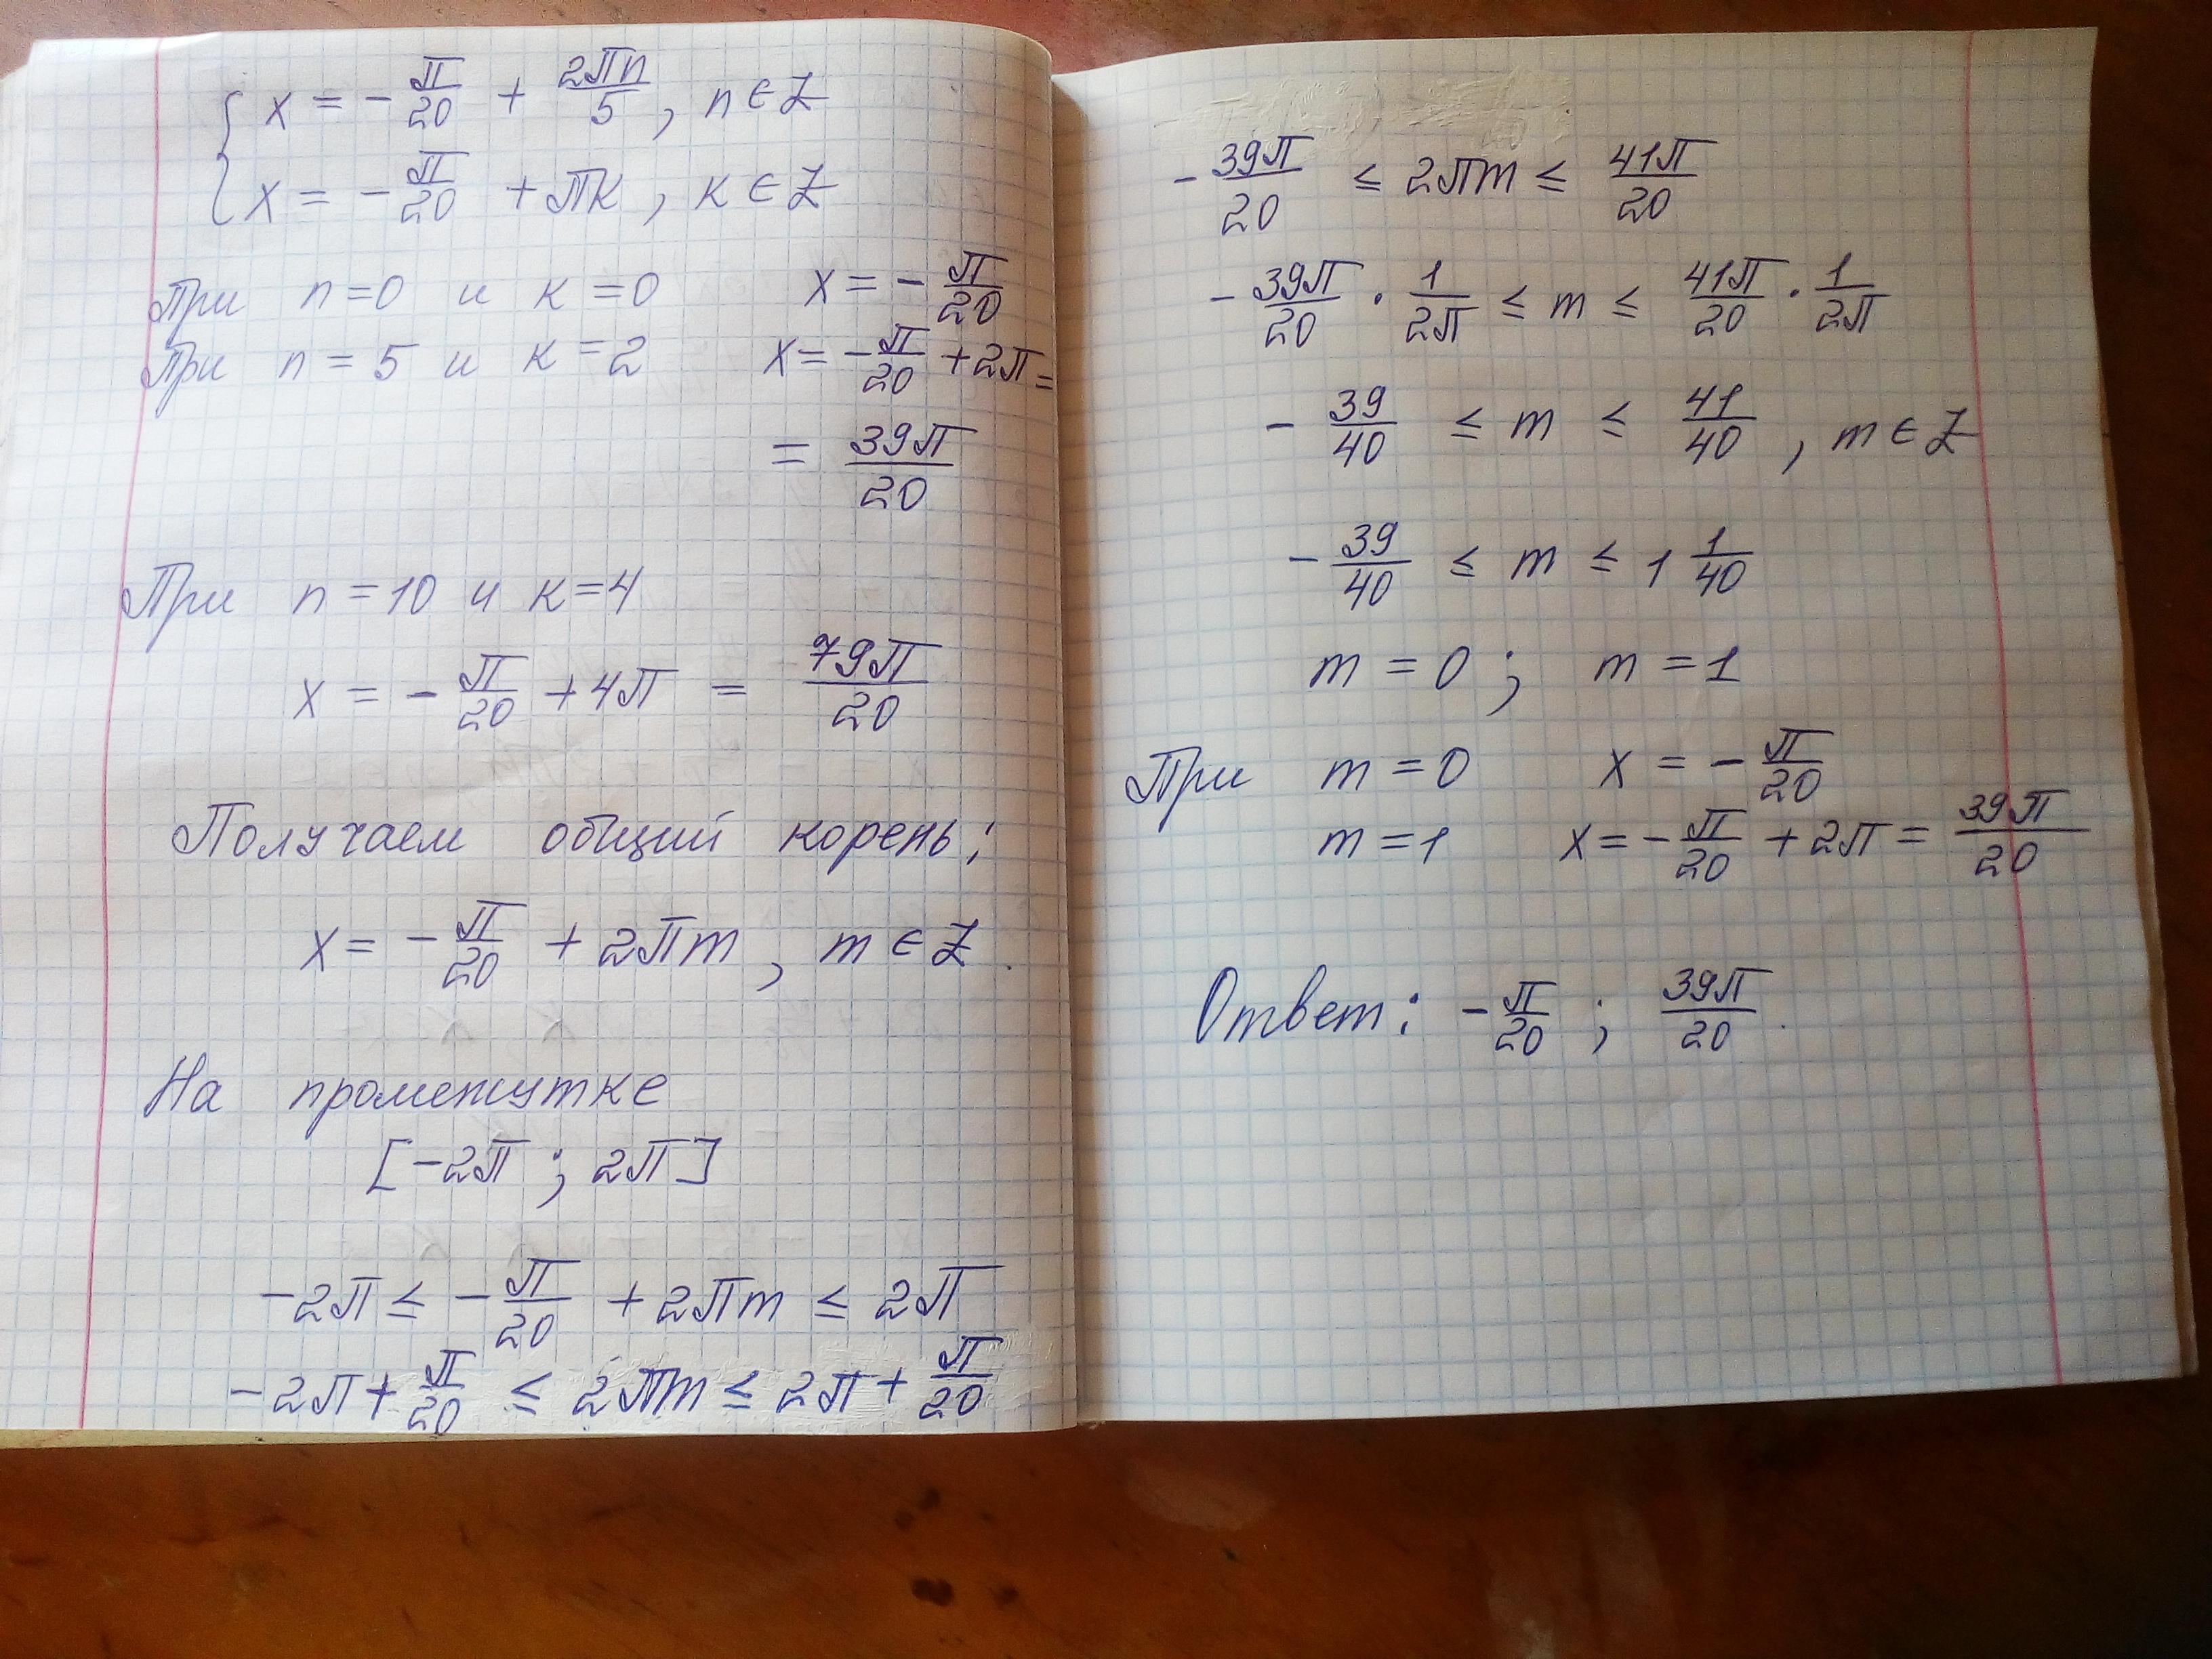 { x = - π/20 + 2πn/5 , n ∈ Z
{ x = - π/20 + πк , к ∈ Z
При n = 0 и к = 0 x = - π/20
При n = 5 и к = 2 x = - π/20 + 2π =
= 39π/20
При n = 10 и к = 4
x = - π/20 + 4π = 79π/20
Получаем общий корень:
x = - π/20 + 2πm , m ∈ Z.
На промежутке
[-2π ; 2π]
-2π ≤ - π/20 + 2πm ≤ 2π
-2π + π/20 ≤ 2πm ≤ 2π + π/20
- 39π/20 ≤ 2πm ≤ 41π/20
- 39π/20 · 1/2π ≤ m ≤ 41π/20 · 1/2π
- 39/40 ≤ m ≤ 41/40 , m ∈ Z
- 39/40 ≤ m ≤ 1 1/40
m = 0 ; m = 1
При m = 0 x = - π/20
m = 1 x = - π/20 + 2π = 39π/20
Ответ: - π/20 ; 39π/20 .